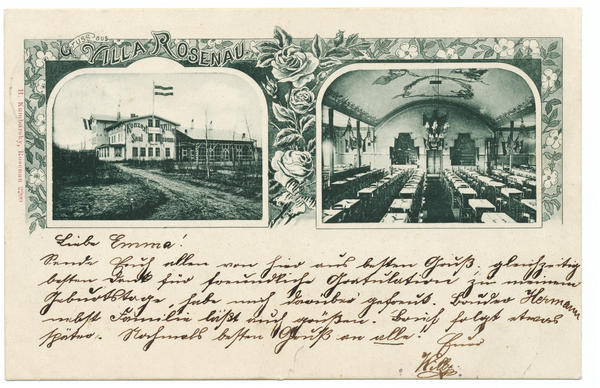 Gruss aus
VILLA ROSENAU.
H. Kumbartzky, Rosenau
Liebe Emma!
Sende Euch allen von hier aus besten Gruß, gleichzeitig
besten Dank für freundliche Gratulation zu meinem
Geburtstage, habe mich darüber gefreut. Bruder Hermann
nebst Familie läßt auch grüßen. Brief folgt etwas
später. Nochmals besten Gruß an alle!
Euer
Willy.